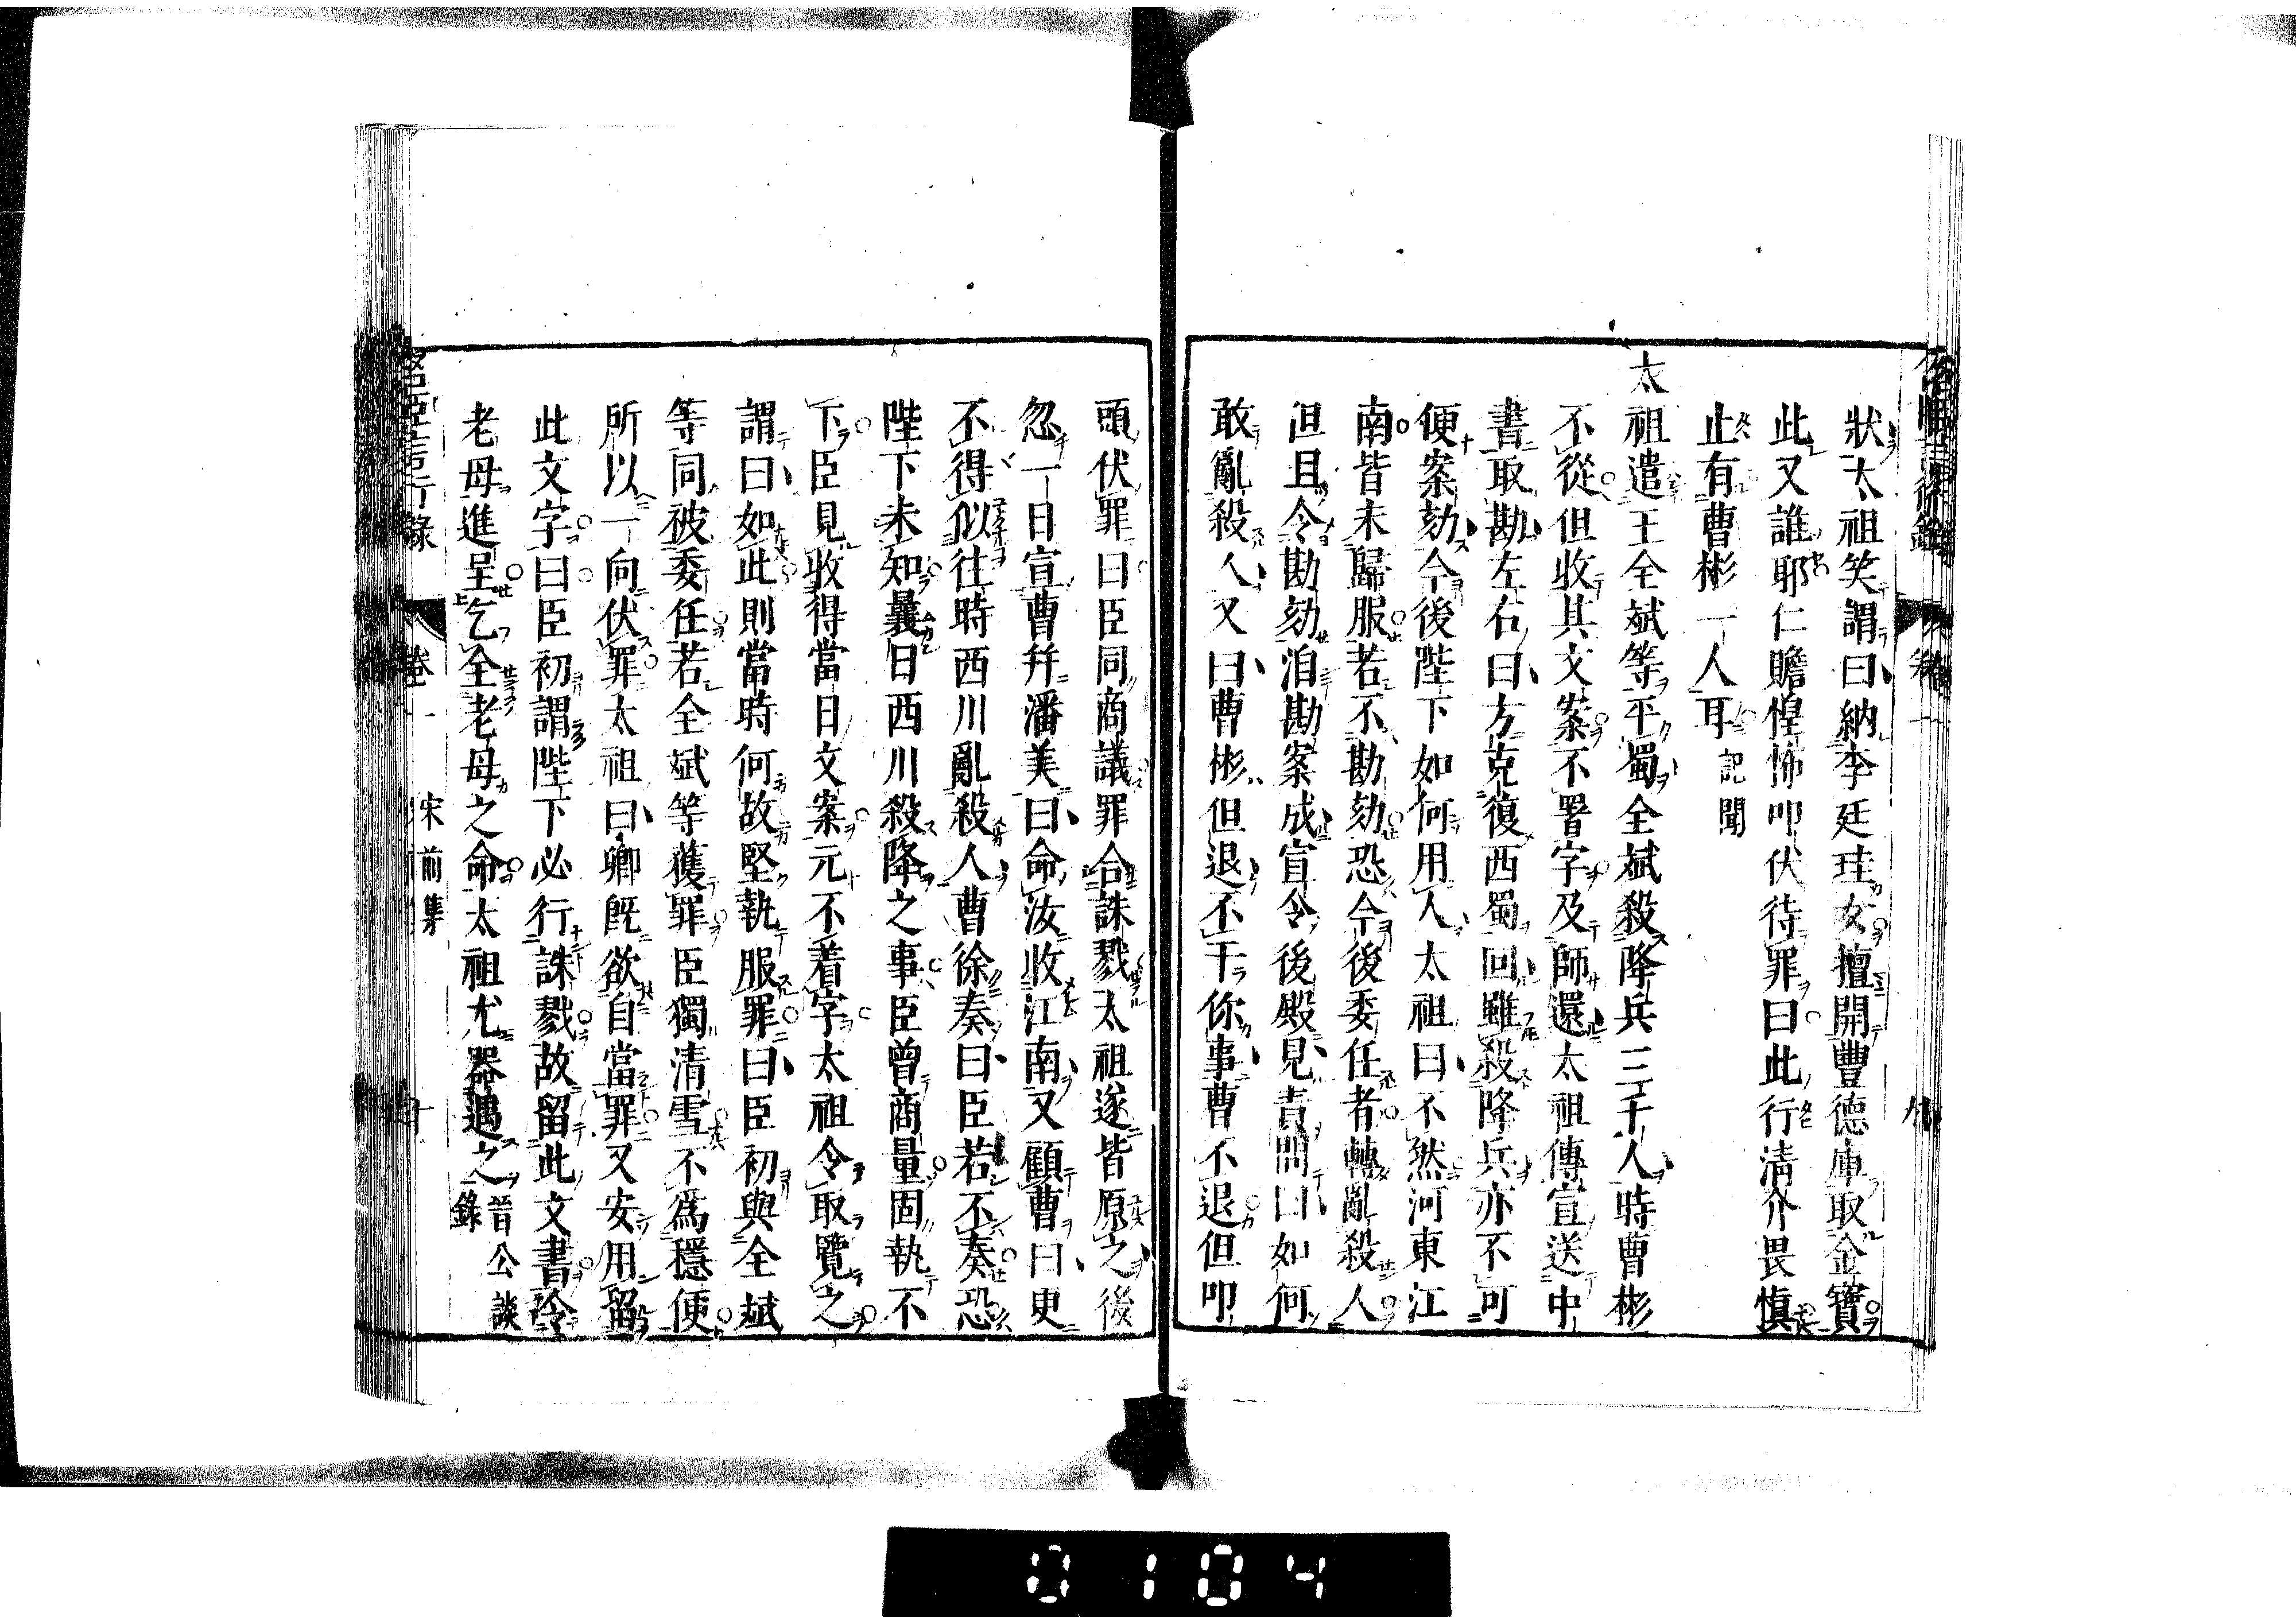 狀太祖笑謂曰納李廷珪女擅開豐德庫取金寶
此又誰耶仁贍惶怖叩伏待罪曰此行清介畏慎
止有曹彬一人耳 記聞
太祖遣王全斌等平蜀全斌殺降兵三千人時曹彬
不從但收其文案不署字及師還太祖傳宣送中
書取勘左右曰方克復西蜀回雖殺降兵亦不可
便案劾今後陛下如何用人太祖曰不然河東江
南皆未歸服若不勘劾恐今後委任者轉亂殺人
但且令勘劾洎勘案成宣令後殿見責問曰如何
敢亂殺人又曰曹彬但退不干你事曹不退但叩
頭伏罪曰臣同商議罪合誅戮太祖遂皆原之後
忽一日宣曹幷潘美曰命汝收江南又顧曹曰更
不得似往時西川亂殺人曹徐奏曰臣若不奏恐
陛下未知曩日西川殺降之事臣曾商量固執不
下臣見收得當日文案元不着字太祖令取覽之
謂曰如此則當時何故堅執服罪曰臣初與全斌
等同被委任若全斌等獲罪臣獨清雪不爲穩便
所以一向伏罪太祖曰卿旣欲自當罪又安用留
此文字曰臣初謂陛下必行誅戮故留此文書令
老母進呈乞全老母之命太祖尤器遇之 晉公談
錄
言行錄 卷一 宋前集 十
0104